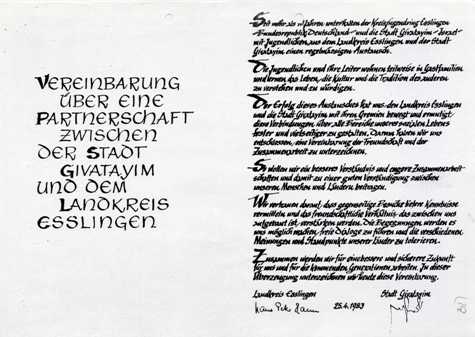 VEREINBARUNG
ÜBER EINE
PARTNERSCHAFT
ZWISCHEN
DER STADT
GIVATAYIM
UND DEM
LANDKREIS
ESSLINGEN
Seit mehr als Jahren unterhalten der Kreisjugendring Esslingen
Bundesrepublik Deutschland und die Stadt Givatayim Israel
mit Jugendlichen aus dem Landkreis Esslingen und der Stadt
Givatayim einen regelmässigen Austausch.
Die Jugendlichen und ihre Leiter wohnen teilweise in Gastfamilien
und lernen das Leben, die Kultur und die Tradition des anderen
zu verstehen und zu würdigen.
Der Erfolg dieses Austausches hat uns, den Landkreis Esslingen
und die Stadt Givatayim mit ihren Gremien bewegt und ermutigt
diese Verbindungen, über alle Bereiche unseres Lebens
fester und vielseitiger zu gestalten. Darum haben wir uns
entschlossen, eine Vereinbarung der Freundschaft und der
Zusammenarbeit zu unterzeichnen.
So wollen wir ein besseres Verständnis und engere Zusammenarbeit
schaffen und damit zu einer guten Verständigung zwischen
unseren Menschen und Ländern beitragen.
Wir vertrauen darauf, dass gegenseitige Besuche tiefere Kenntnisse
vermitteln und das freundschaftliche Verhältnis, das zwischen uns
aufgebaut ist, verstärken werden. Die Begegnungen werden es
uns möglich machen, freie Dialoge zu führen und die verschiedenen
Meinungen und Standpunkte unserer Länder zu tolerieren.
Zusammen werden wir für eine bessere und sicherere Zukunft
für uns und für die kommenden Generationen arbeiten. In dieser
Überzeugung unterzeichnen wir heute diese Vereinbarung.
Landkreis Esslingen Stadt Givatayim
25.4.1983